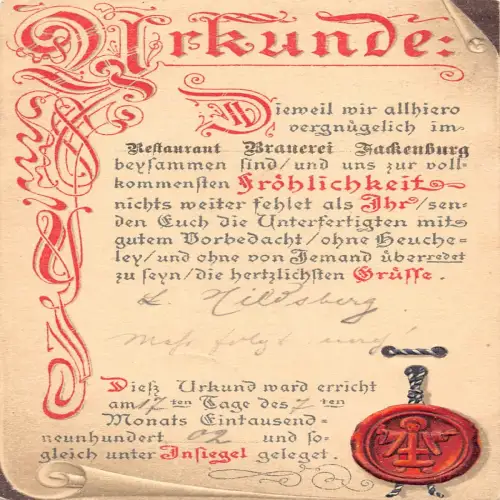 Urkunde:
Dieweil wir allhiero
vergnügelich im
Restaurant Brauerei Fackenburg
beysammen sind/und uns zur voll-
kommensten Fröhlichkeit
nichts weiter fehlet als Ihr/sen-
den Euch die Unterfertigten mit
gutem Vorbedacht/ohne Heuche-
ley/und ohne von Jemand überredet
zu seyn/die hertzlichsten Grüsse.
folgt
Diesz Urkund ward erricht
am 17 ten Tage des 7 ten
Monats Eintausend-
neunhundert 02 und so-
gleich unter Insiegel geleget.